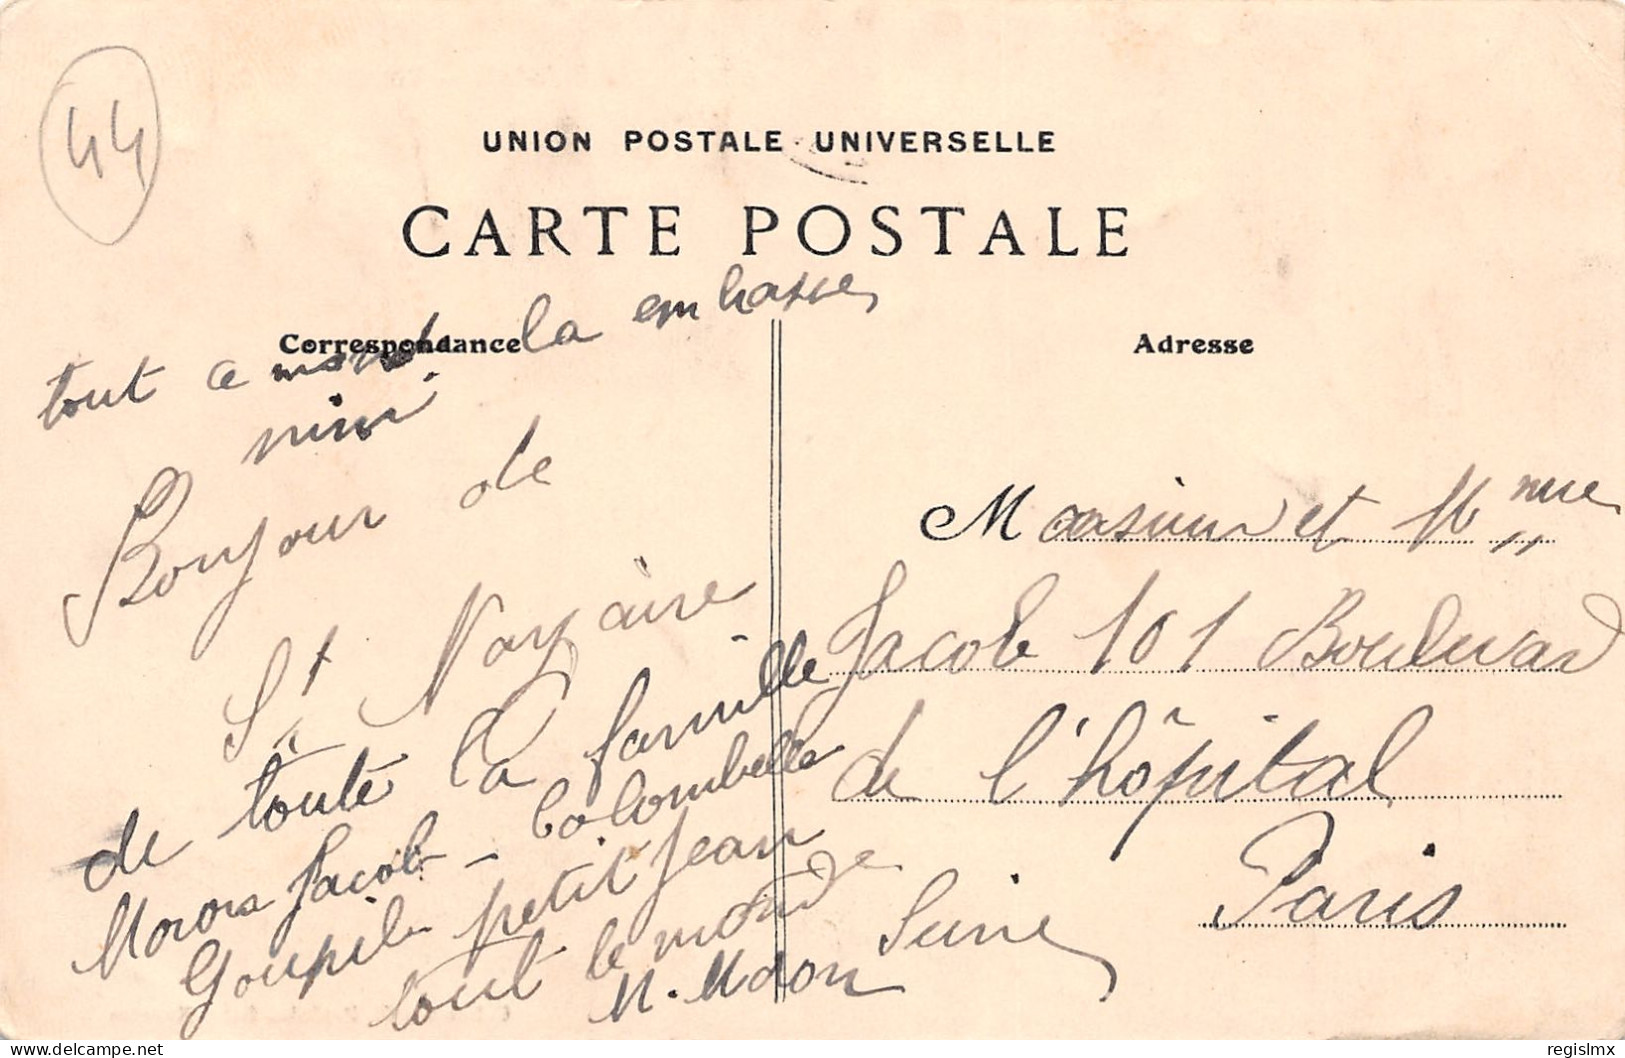 44
UNION POSTALE UNIVERSELLE
CARTE POSTALE
Correspondance
Adresse
tout ce monde la embrasse
nini
Bonjour de
St Nazaire
de toute la famille
Jacob - Colombelle
Goupil petit Jean
tout le monde
Monsieur et Mme
Jacob 101 Boulevard
de l'hôpital
Paris
Seine
regislmx